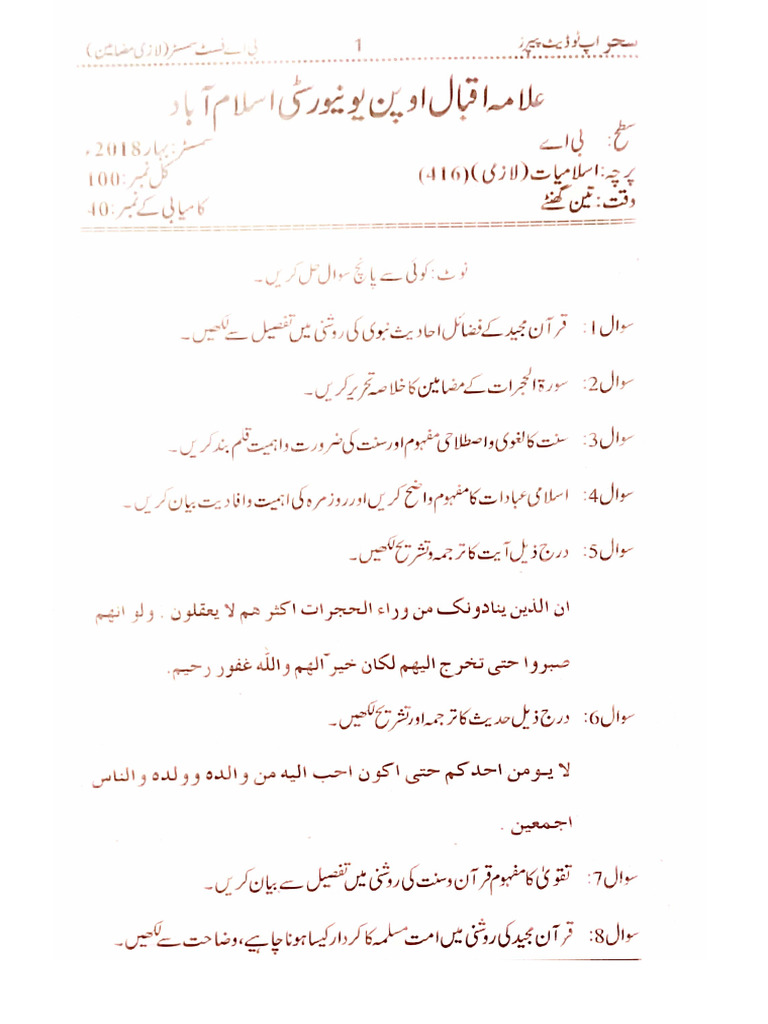 سحر اپ ٹو ڈیٹ پیپرز 1 بی اے فسٹ سمسٹر (لازمی مضامین)
علامہ اقبال اوپن یونیورسٹی اسلام آباد
سطح: بی اے سمسٹر: بہار 2018ء
پرچہ: اسلامیات (لازمی) (416) کل نمبر: 100
وقت: تین گھنٹے کامیابی کے نمبر: 40
نوٹ: کوئی سے پانچ سوال حل کریں۔
سوال 1: قرآن مجید کے فضائل احادیث نبوی کی روشنی میں تفصیل سے لکھیں۔
سوال 2: سورۃ الحجرات کے مضامین کا خلاصہ تحریر کریں۔
سوال 3: سنت کا لغوی و اصطلاحی مفہوم اور سنت کی ضرورت و اہمیت قلم بند کریں۔
سوال 4: اسلامی عبادات کا مفہوم واضح کریں اور روزمرہ کی اہمیت و افادیت بیان کریں۔
سوال 5: درج ذیل آیت کا ترجمہ و تشریح لکھیں۔
ان الذین ینادونک من وراء الحجرات اکثر ھم لا یعقلون . ولو انھم
صبروا حتی تخرج الیھم لکان خیر آلھم واللّٰہ غفور رحیم.
سوال 6: درج ذیل حدیث کا ترجمہ اور تشریح لکھیں۔
لا یومن احدکم حتی اکون احب الیہ من والدہ وولدہ والناس
اجمعین .
سوال 7: تقویٰ کا مفہوم قرآن و سنت کی روشنی میں تفصیل سے بیان کریں۔
سوال 8: قرآن مجید کی روشنی میں امت مسلمہ کا کردار کیسا ہونا چاہیے، وضاحت سے لکھیں۔